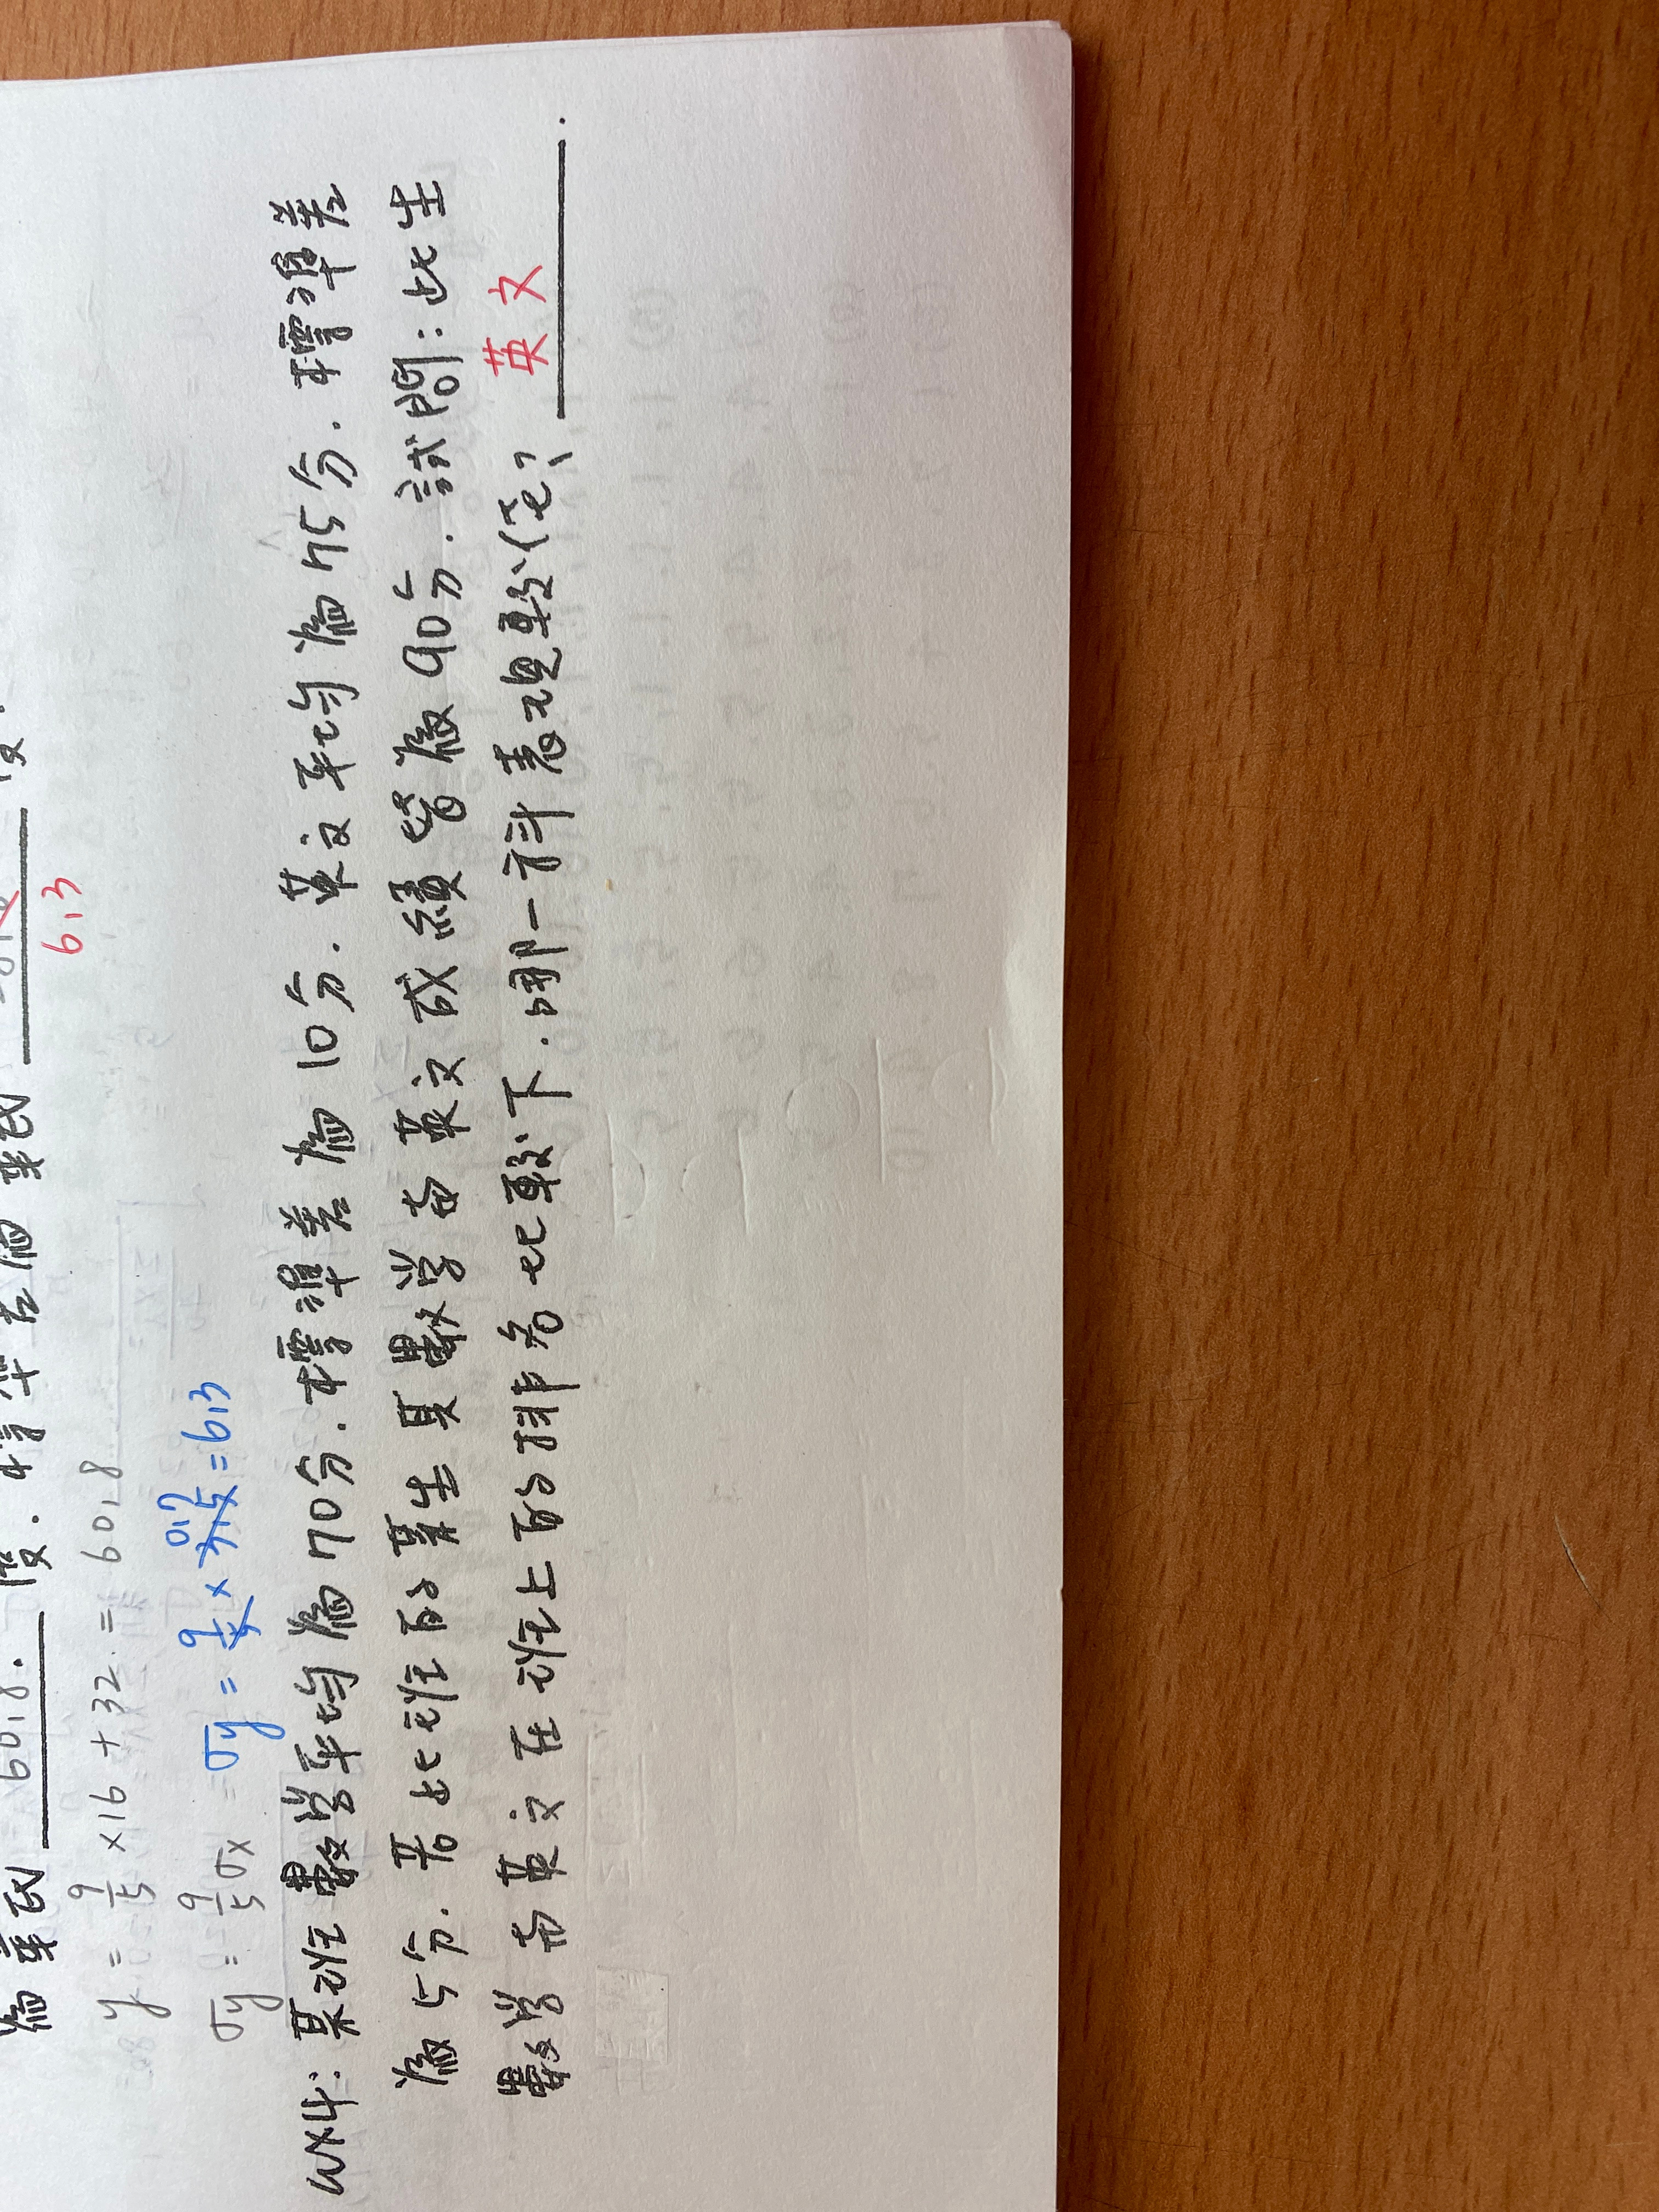 為華氏 60.8. 度. 標準差為華氏 度.
6.3
y = 9/5 ×16 + 32 = 60.8
σy = 9/5 σx = σy = 9/5 × 3.5 0.7 = 6.3
ex4: 某班數學平均為70分. 標準差為10分. 英文平均為75分. 標準差
為5分. 若此班的某生其數學和英文成績皆為90分. 試問: 此生
數學和英文在班上的排名比較下. 哪一科表現較佳? 英文.